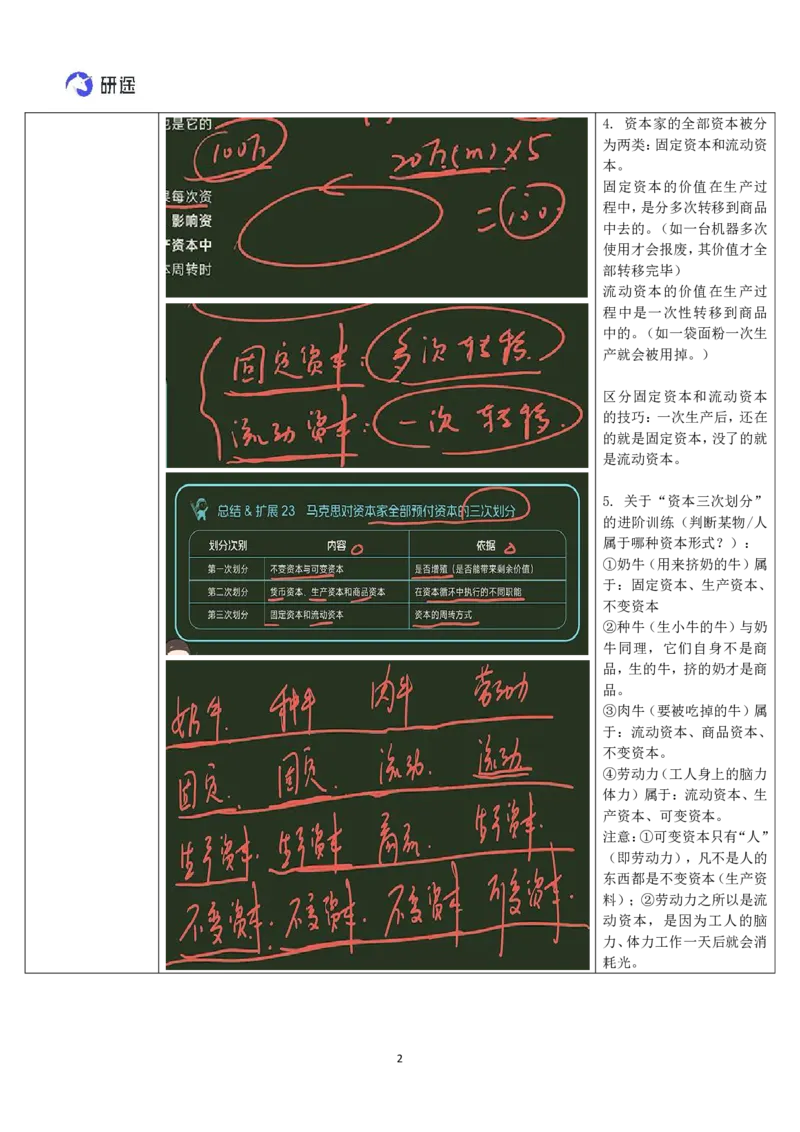 研途
也是它的
100万
20万(m)×5
是每次资
影响资
产资本中
本周转时
=100
固定资本:多次转移.
流动资本:一次转移.
总结 & 扩展 23 马克思对资本家全部预付资本的三次划分
划分次别 内容 依据
第一次划分 不变资本与可变资本 是否增殖(是否能带来剩余价值)
第二次划分 货币资本、生产资本和商品资本 在资本循环中执行的不同职能
第三次划分 固定资本和流动资本 资本的周转方式
奶牛. 种牛 肉牛 劳动力
固定. 固定. 流动. 流动.
生产资本. 生产资本. 商品. 生产资本.
不变资本. 不变资本. 不变资本 可变资本.
4. 资本家的全部资本被分
为两类:固定资本和流动资
本。
固定资本的价值在生产过
程中,是分多次转移到商品
中去的。(如一台机器多次
使用才会报废,其价值才全
部转移完毕)
流动资本的价值在生产过
程中是一次性转移到商品
中的。(如一袋面粉一次生
产就会被用掉。)
区分固定资本和流动资本
的技巧:一次生产后,还在
的就是固定资本,没了的就
是流动资本。
5. 关于“资本三次划分”
的进阶训练(判断某物/人
属于哪种资本形式?):
①奶牛(用来挤奶的牛)属
于:固定资本、生产资本、
不变资本
②种牛(生小牛的牛)与奶
牛同理,它们自身不是商
品,生的牛,挤的奶才是商
品。
③肉牛(要被吃掉的牛)属
于:流动资本、商品资本、
不变资本。
④劳动力(工人身上的脑力
体力)属于:流动资本、生
产资本、可变资本。
注意:①可变资本只有“人”
(即劳动力),凡不是人的
东西都是不变资本(生产资
料);②劳动力之所以是流
动资本,是因为工人的脑
力、体力工作一天后就会消
耗光。
2